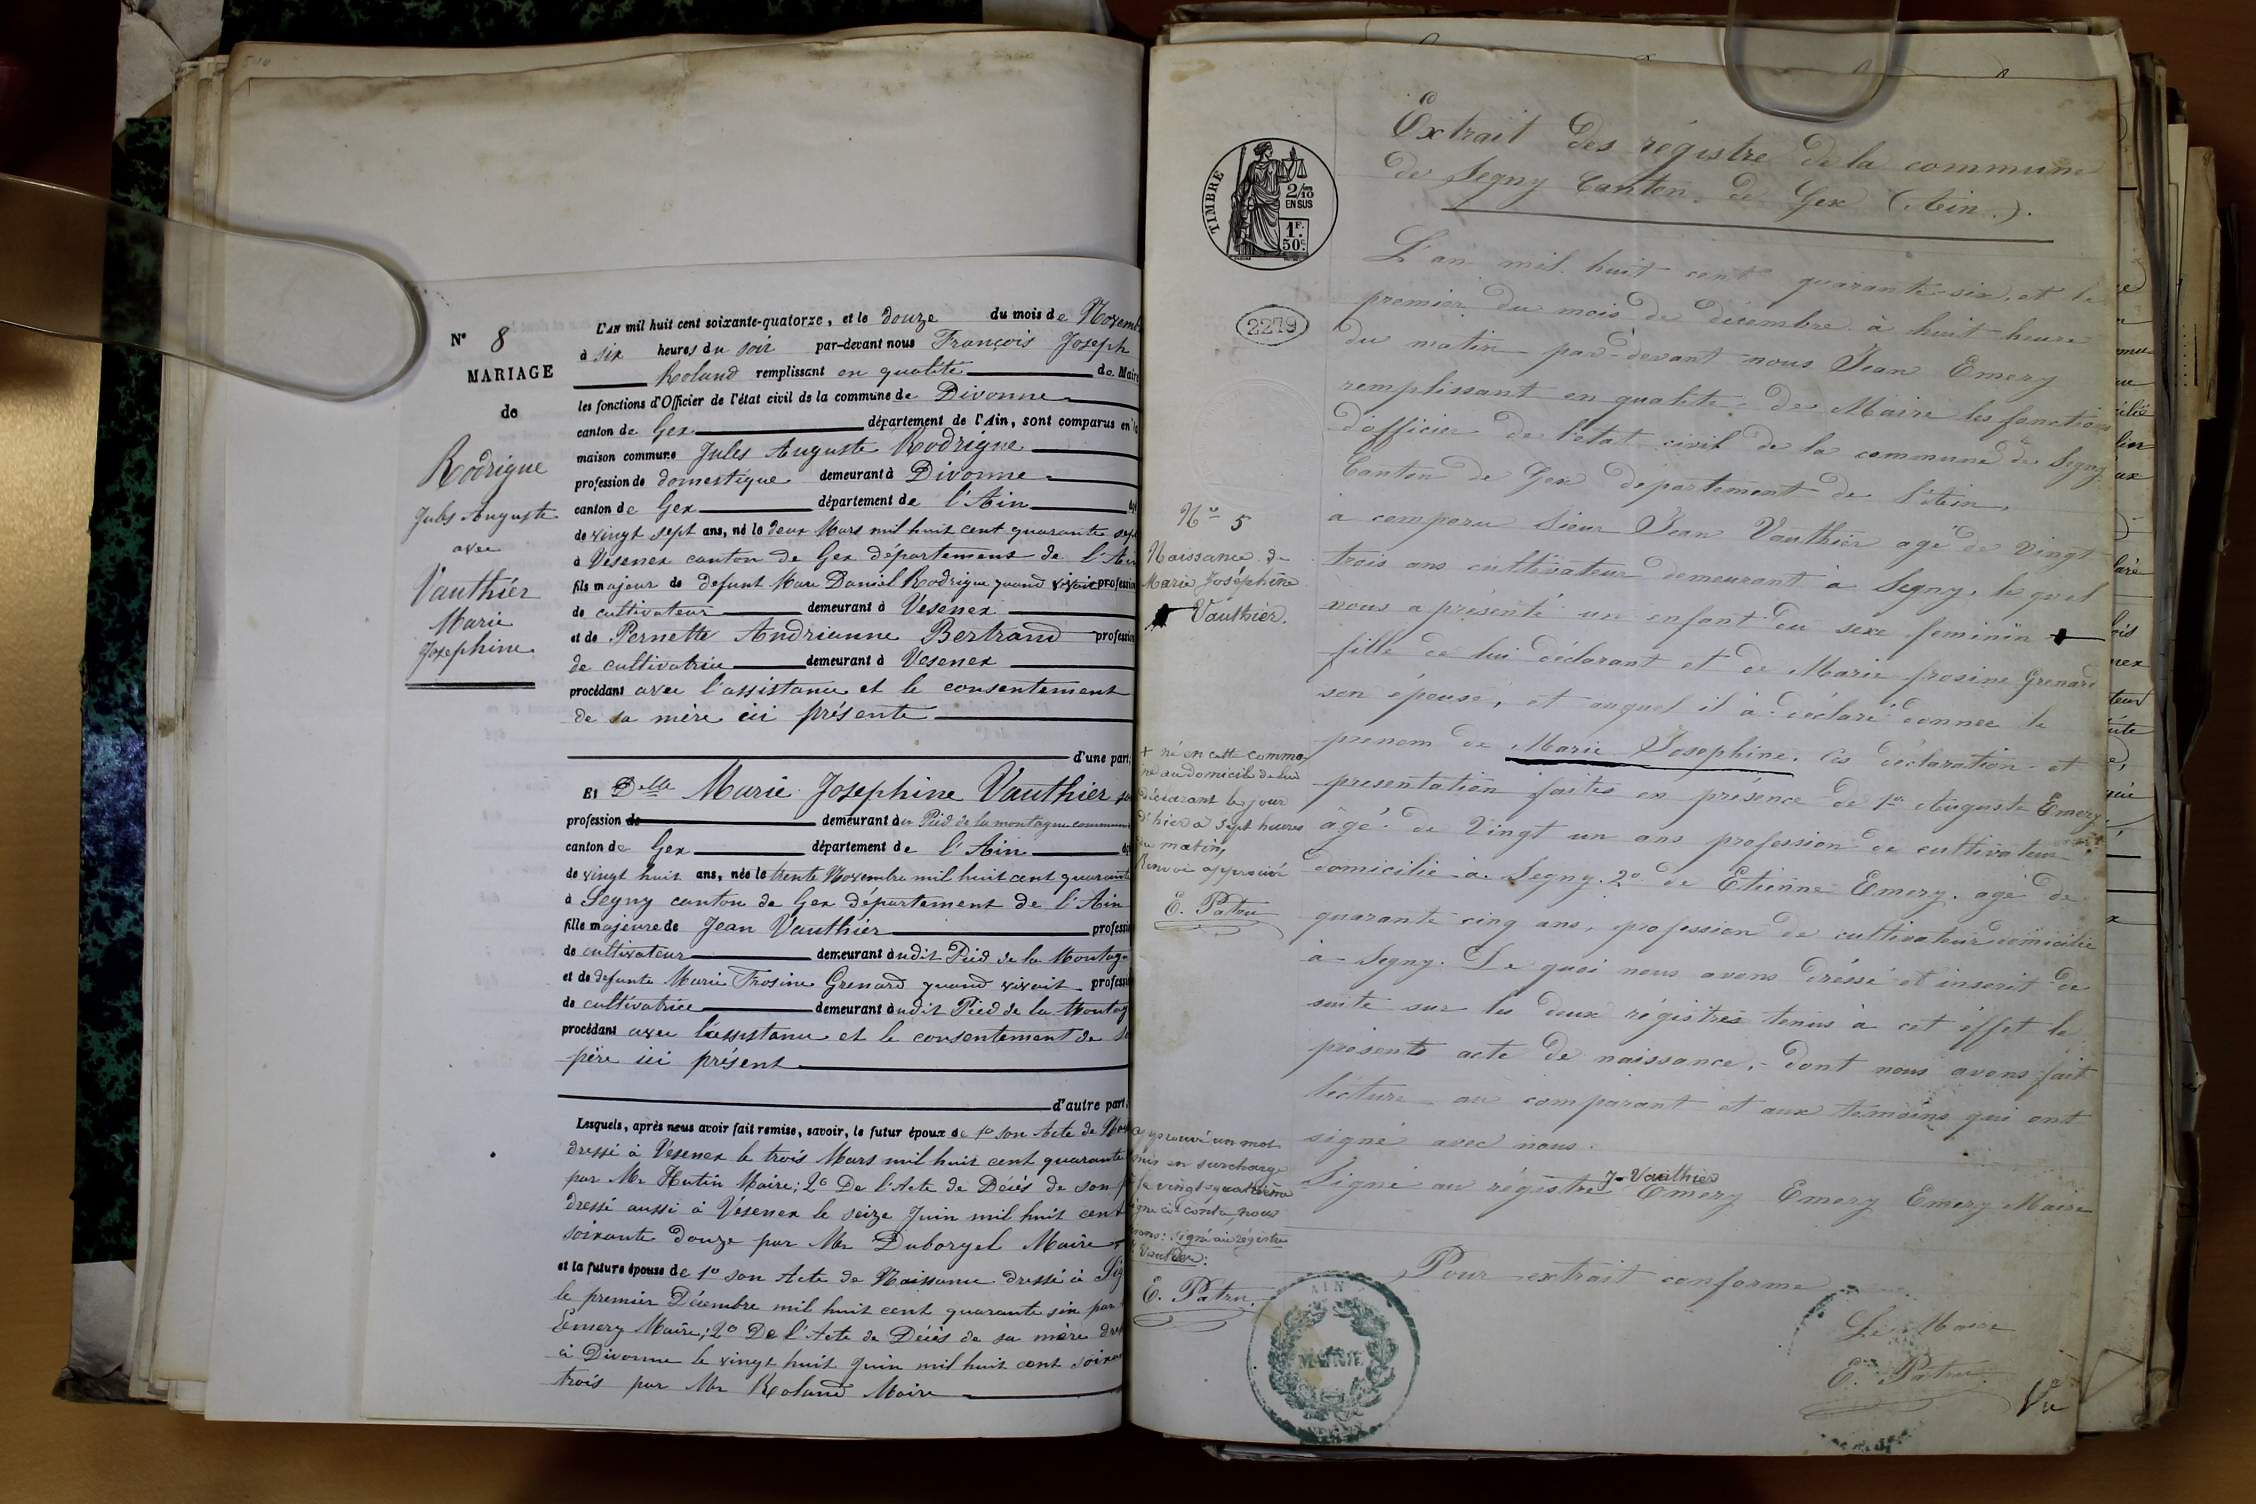 N° 8
MARIAGE
de
Rodrigue
Jules Auguste
avec
Vauthier
Marie
Josephine
L'AN mil huit cent soixante-quatorze, et le douze du mois de Novemb
à six heures du soir par-devant nous François Joseph
Roland remplissant en qualité de Maire
les fonctions d'Officier de l'état civil de la commune de Divonne
canton de Gex département de l'Ain, sont comparus en la
maison commune Jules Auguste Rodrigue
profession de domestique demeurant à Divonne
canton de Gex département de l'Ain âgé
de vingt sept ans, né le deux Mars mil huit cent quarante sept
à Vesenex canton de Gex département de l'Ain
fils majeur de defunt Marc Daniel Rodrigue quand vivait profession
de cultivateur demeurant à Vesenex
et de Pernette Andrianne Bertrand profession
de cultivatrice demeurant à Vesenex
procédant avec l'assistance et le consentement
de sa mère ici présente
d'une part;
Et Delle Marie Josephine Vauthier sa
profession de demeurant au Pied de la montagne commune
canton de Gex département de l'Ain âgé
de vingt huit ans, née le trente Novembre mil huit cent quarante
à Segny canton de Gex département de l'Ain
fille majeure de Jean Vauthier profession
de cultivateur demeurant audit Pied de la Montag
et de defunte Marie Frosine Grenard quand vivait profession
de cultivatrice demeurant audit Pied de la Montag
procédant avec l'assistance et le consentement de s
père ici présent
d'autre part;
Lesquels, après nous avoir fait remise, savoir, le futur époux de 1° son Acte de Nais
dressé à Vésenex le trois Mars mil huit cent quarante
par Mr Hutin Maire; 2° De l'Acte de Décès de son p
dressé aussi à Vésenex le seize Juin mil huit cent
soixante douze par Mr Duborgel Maire
et la future épouse de 1° son Acte de Naissance dressé à Seg
le premier Décembre mil huit cent quarante six par
Emery Maire; 2° De l'Acte de Décès de sa mère dres
à Divonne le vingt huit Juin mil huit cent soixan
trois par Mr Roland Maire
TIMBRE
2/10
EN SUS
1F.
50c.
2279
Extrait des régistre de la commune
de Segny Canton de Gex (Ain.).
L'an mil huit cent quarante-six, et le
premier du mois de décembre à huit heure
du matin par-devant nous Jean Emery
remplissant en qualité de Maire les fonctions
d'officier de l'état civil de la commune de Segny
Canton de Gex departement de l'Ain,
a comparu Sieur Jean Vauthier agé de vingt
trois ans cultivateur demeurant à Segny, le quel
nous a présenté un enfant du sexe feminin +
fille de lui déclarant et de Marie frosine Grenard
son épouse, et auquel il à déclaré donner le
prenom de Marie Josephine. Ces déclaration et
presentation faites en présence de 1° Auguste Emery
âgé de vingt un ans profession de cultivateur
domicilié à Segny. 2° de Etienne Emery agé de
quarante cinq ans, profession de cultivateur domicilié
à Segny. De quoi nous avons dréssé et inscrit de
suite sur les deux régistres tenus à cet éffet le
présente acte de naissance, dont nous avons fait
lecture au comparant et aux témoins qui ont
signé avec nous.
Signé au régistre J. Vauthier Emery Emery Emery Maire
Pour extrait conforme
Le Maire
E. Patru
Vu
N° 5
Naissance de
Marie Joséphine
Vauthier.
+ né en cette commu-
ne au domicile de lui
déclarant le jour
d'hier à sept heures
du matin,
Renvoi approuvé
E. Patru
approuvé un mot
mis en surcharge
à la vingt quatrième
ligne ci-contre, nous
disons: signé au régistre
J. Vauthier:
E. Patru
AIN
MAIRIE